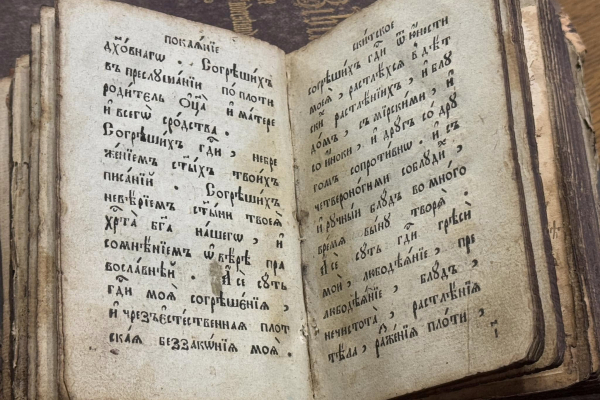 покаѧ́нїе
дх҃о́внагѡ . Согрѣши́хъ
въ преслꙋша́нїи по пло́ти
роди́тель ѻ҆ц҃а̀ и҆ ма́тере
и҆ всегѡ̀ сро́дства .
Согрѣши́хъ гдⷭ҇и , небре
же́нїемъ ст҃ы́хъ твои́хъ
писа́нїй . Согрѣши́хъ
невѣ́рїемъ ст҃ы́ни твоеѧ̀
хрⷭ҇та̀ бг҃а на́шегѡ , и҆
сомнѣ́нїемъ ѡ҆ вѣ́рѣ пра
восла́внѣй . А҆ сѐ сꙋ́ть
гдⷭ҇и моѧ̀ согрѣше́нїѧ ,
и҆ чрезъесте́ственнаѧ пло́т
скаѧ беззакѡ́нїѧ моѧ̀ .
ски́тское
согрѣши́хъ гдⷭ҇и ѿ ю҆́ности
моеѧ̀ , растлѣ́хсѧ в дѣ́т
ски растлѣ́нїихъ , и҆ блꙋ
до́мъ , съ мі́рскими , и҆
со и҆́ноки , и҆ дрꙋ́гъ со дрꙋ
гомъ сопроти́внѡ . и҆ съ
четвероно́гими соблꙋди́х ,
и҆ рꙋ́чный блꙋ́дъ во мно́го
времѧ быхꙋ творѧ̀ .
А҆ сѐ сꙋ́ть гдⷭ҇и грѣсѝ
моѝ , любодѣѧ́нїе , пре
любодѣѧ́нїе , блꙋ́дъ ,
нечистота̀ , растлѣ́нїѧ
тѣ́ла , раже́нїѧ пло́ти ,